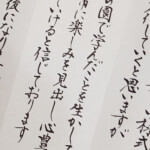 行していくと思いますが
の園で学んだことを生かし
に楽しみを見出し心豊
いけると信じております
後になり